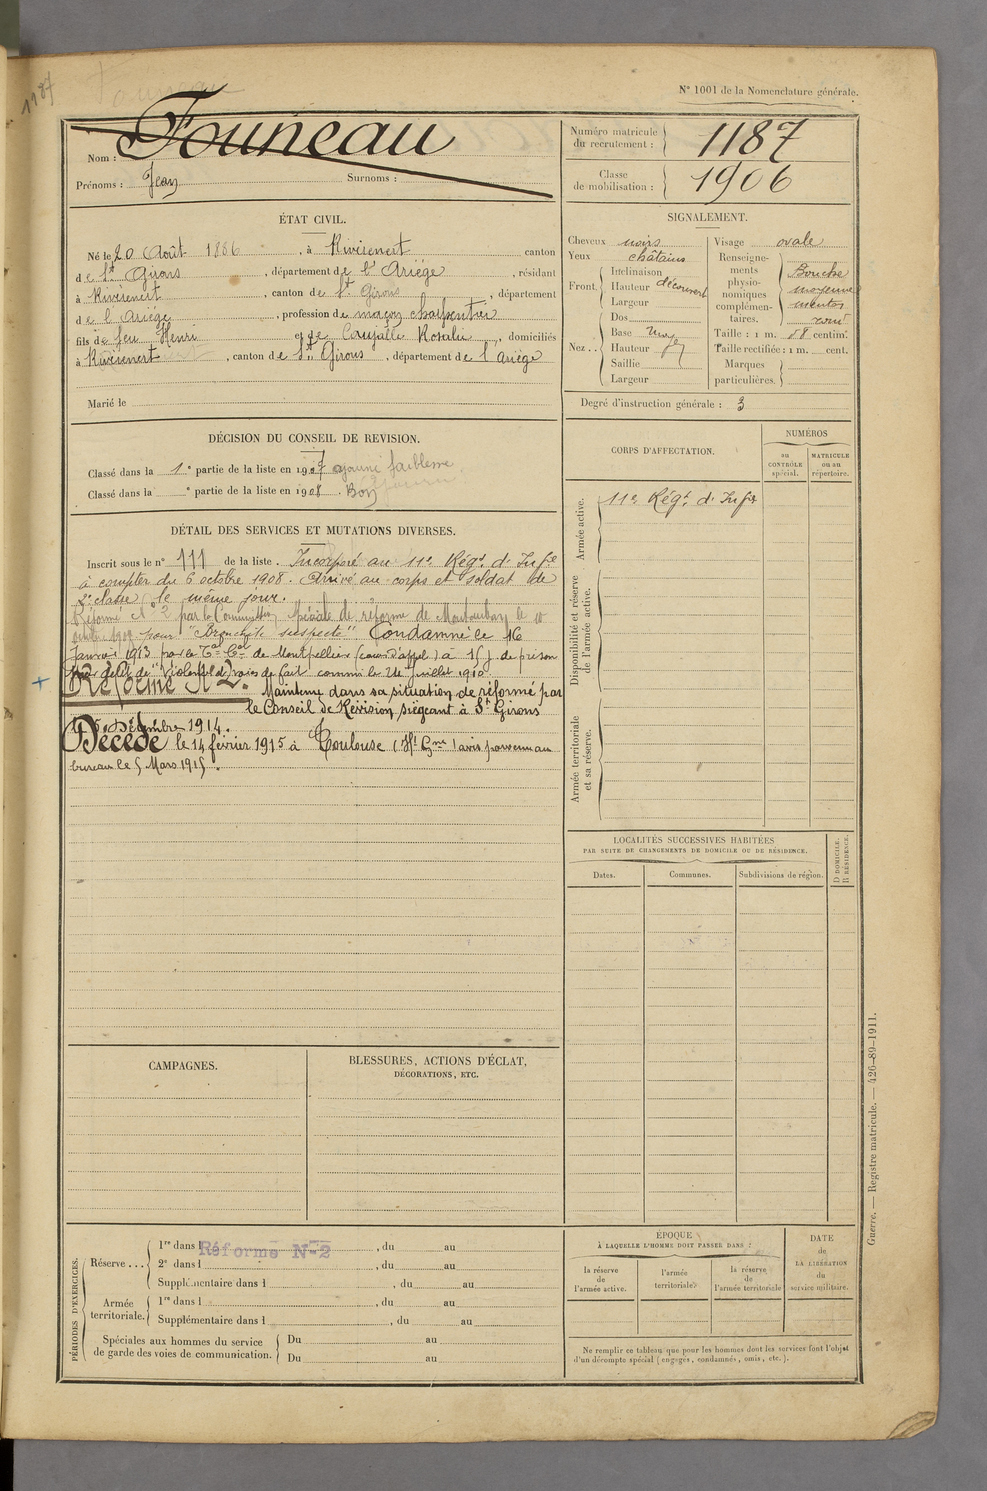 1187
N° 1001 de la Nomenclature générale.
Nom : Founeau
Prénoms : Jean Surnoms :
Numéro matricule du recrutement : 1187
Classe de mobilisation : 1906
ÉTAT CIVIL.
Né le 20 Août 1886, à Rivèrenert canton
de St Girons, département de l'Ariège, résidant
à Rivèrenert, canton de St Girons, département
de l'Ariège, profession de maçon charpentier
fils de feu Henri et de Coujalle Rosalie, domiciliés
à Rivèrenert, canton de St Girons, département de l'Ariège
Marié le
SIGNALEMENT.
Cheveux noirs
Yeux châtains
Front. Inclinaison
Hauteur découvert
Largeur
Nez.. Dos
Base
Hauteur
Saillie
Largeur
Visage ovale
Renseignements physionomiques complémentaires. Bouche
moyenne
menton
rond
Taille : 1 m. 58 centim.
Taille rectifiée : 1 m. cent.
Marques particulières.
Degré d'instruction générale : 3
DÉCISION DU CONSEIL DE REVISION.
Classé dans la 1e partie de la liste en 1907 ajourné faiblesse
Classé dans la e partie de la liste en 1908. Bon
DÉTAIL DES SERVICES ET MUTATIONS DIVERSES.
Inscrit sous le n° 111 de la liste. Incorporé au 11e Régt d'Infie
à compter du 6 octobre 1908. Arrivé au corps et soldat de
2e classe le même jour.
Réformé N° 2 par la Commission spéciale de réforme de Montauban le 10
octobre 1909 pour "Bronchite suspecte". Condamné le 16
Janvier 1913 par le Tal Cel de Montpellier (cour d'appel) à 15 j. de prison
pour délit de "Violences et voies de fait commis le 24 juillet 1910.
Réformé N° 2. Maintenu dans sa situation de réformé par
le Conseil de Révision siégeant à St Girons
Décembre 1914.
Décédé le 14 février 1915 à Toulouse (Hte Gne) avis parvenu au
bureau le 5 Mars 1915.
CORPS D'AFFECTATION.
NUMÉROS
au CONTRÔLE spécial.
MATRICULE ou au répertoire.
Armée active.
11e Régt d'Infie
Disponibilité et réserve de l'armée active.
Armée territoriale et sa réserve.
LOCALITÉS SUCCESSIVES HABITÉES
PAR SUITE DE CHANGEMENTS DE DOMICILE OU DE RÉSIDENCE.
Dates.
Communes.
Subdivisions de région.
D DOMICILE.
R RÉSIDENCE.
CAMPAGNES.
BLESSURES, ACTIONS D'ÉCLAT,
DÉCORATIONS, ETC.
PÉRIODES D'EXERCICES.
Réserve... 1re dans l Réformé N° 2, du au
2e dans l, du au
Supplémentaire dans l, du au
Armée territoriale. 1re dans l, du au
Supplémentaire dans l, du au
Spéciales aux hommes du service de garde des voies de communication. Du au
Du au
ÉPOQUE
À LAQUELLE L'HOMME DOIT PASSER DANS :
la réserve de l'armée active.
l'armée territoriale.
la réserve de l'armée territoriale
DATE
de
LA LIBÉRATION
du
service militaire.
Ne remplir ce tableau que pour les hommes dont les services font l'objet
d'un décompte spécial (engagés, condamnés, omis, etc.).
Guerre. — Registre matricule. — 426-89-1911.